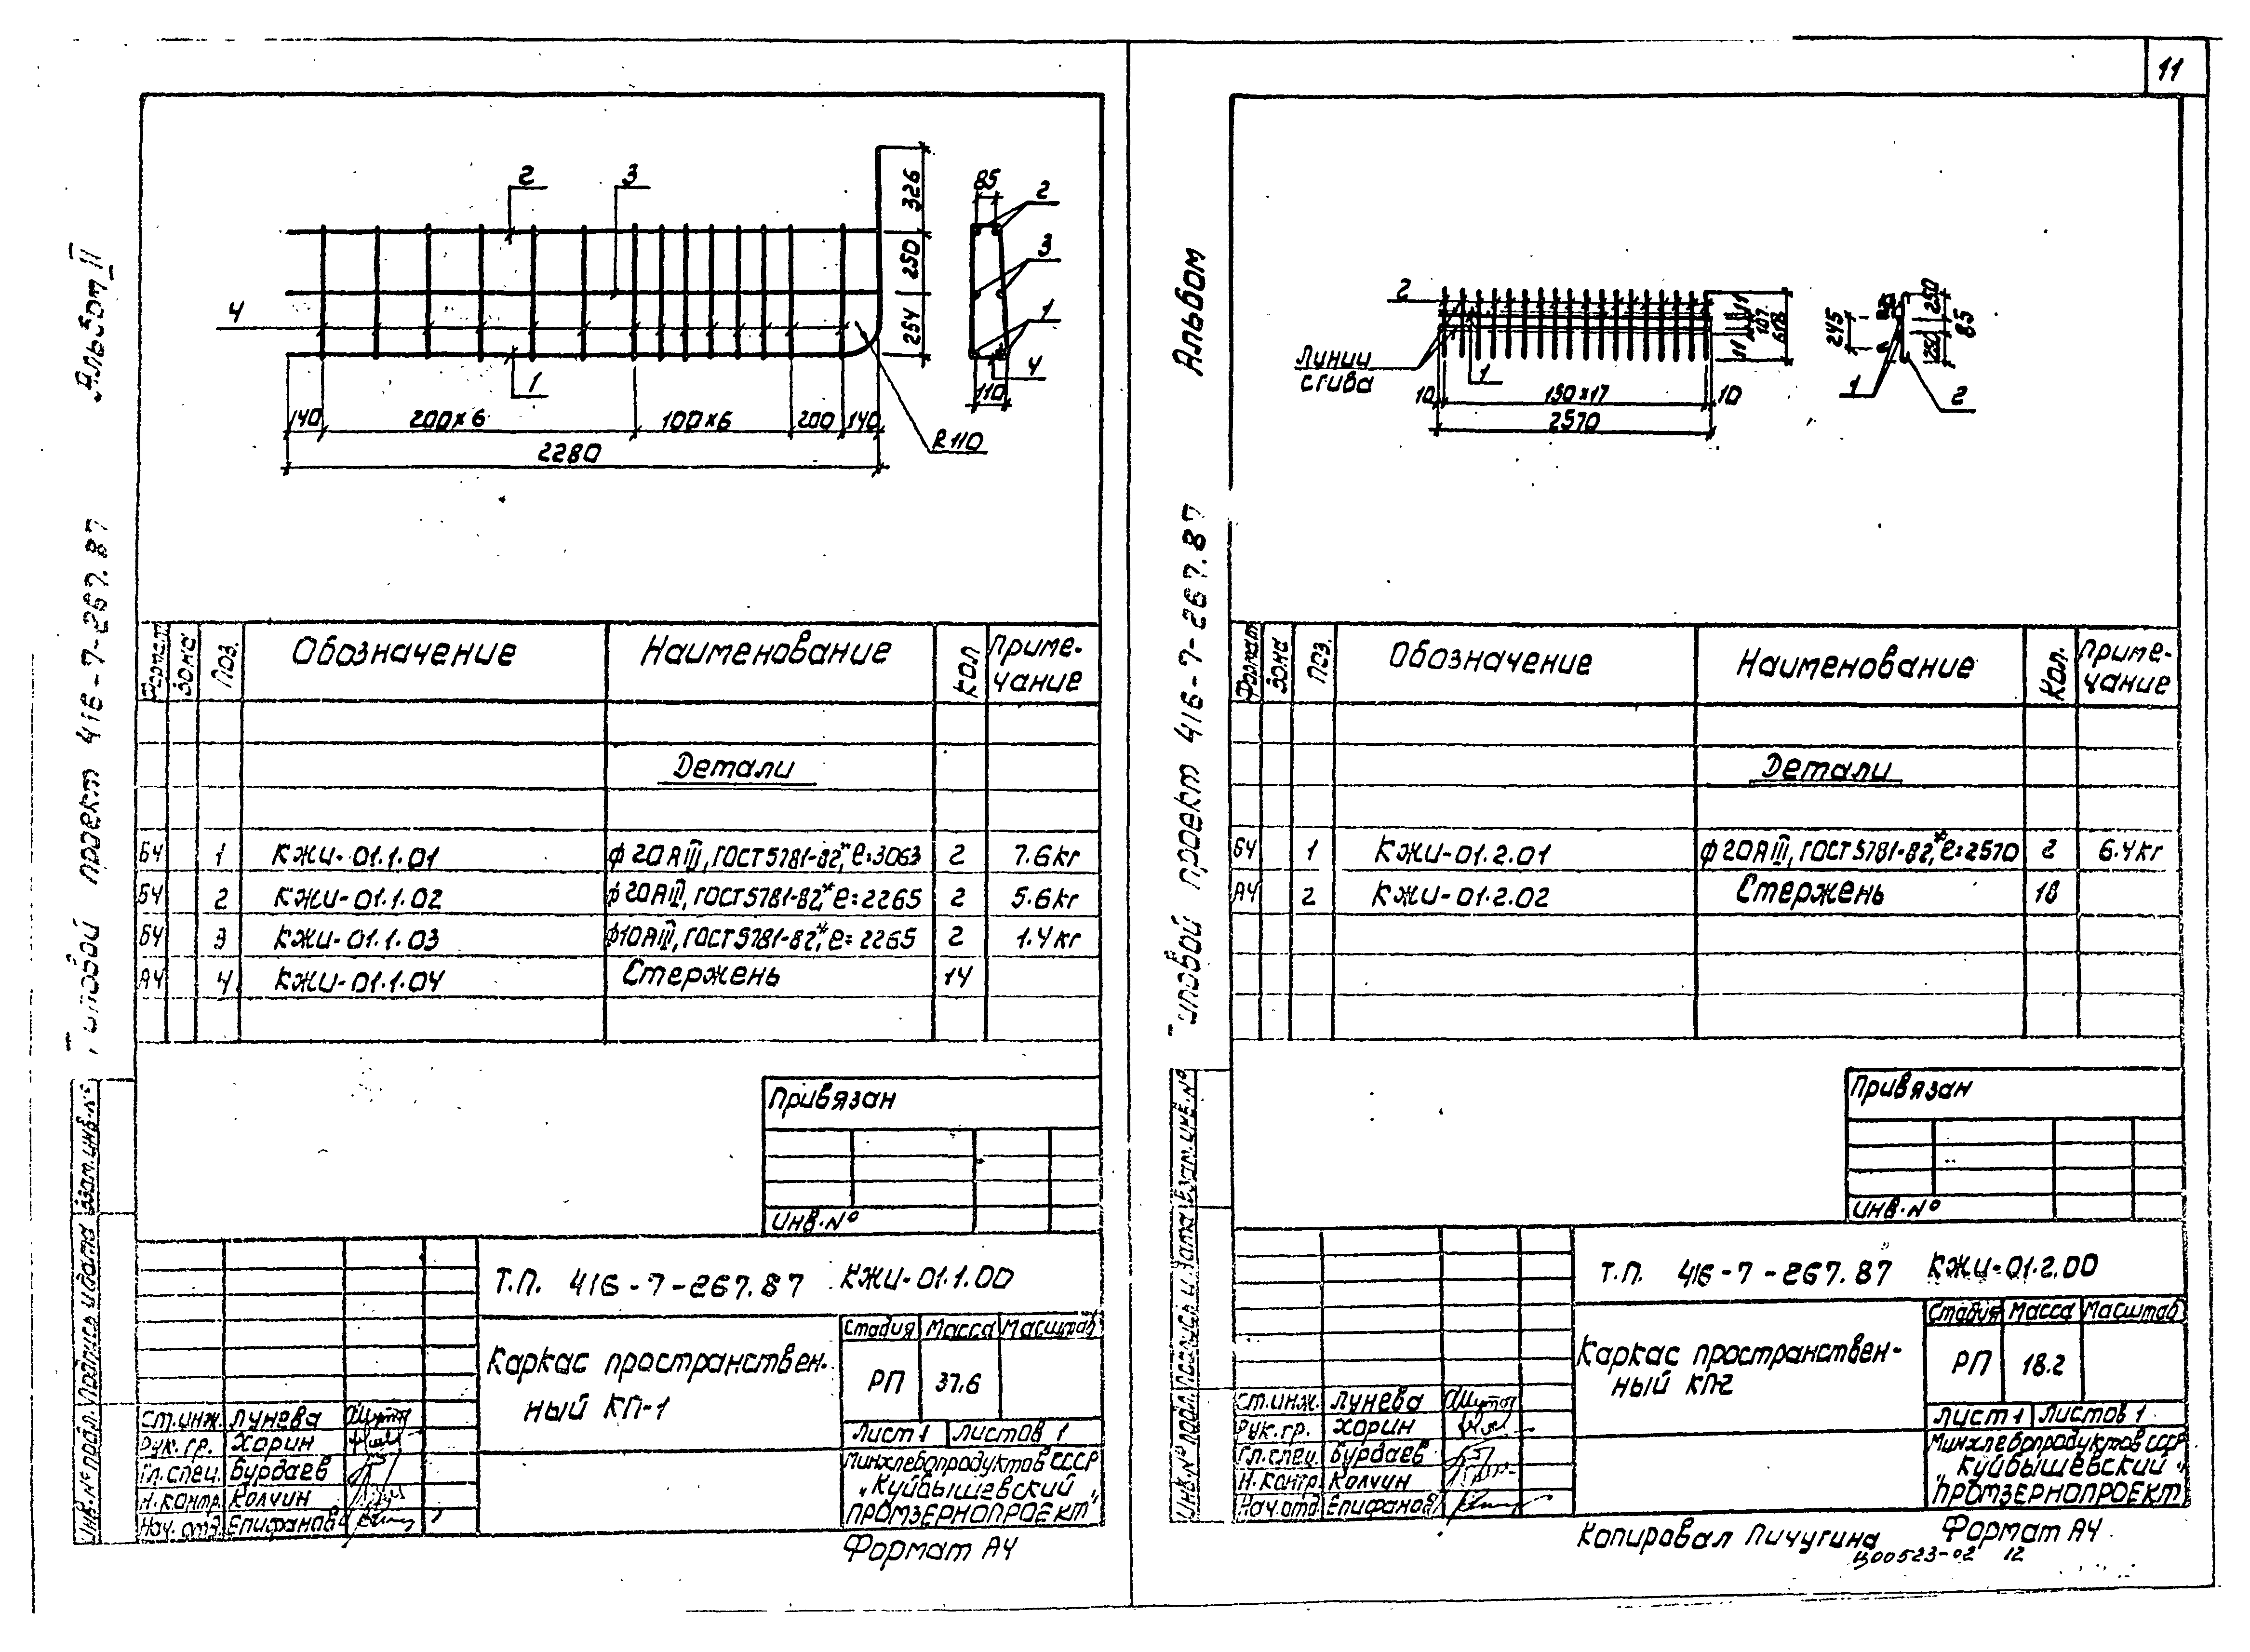 11
Альбом II
Типовой проект 416-7-267.87
2
3
4
1
326
250
254
R110
140
200×6
100×6
200
140
2280
85
2
3
1
4
110
Формат
Зона
Поз.
Обозначение
Наименование
Кол
Приме-
чание
Детали
БЧ 1 КЖИ-01.1.01 ф20АIII, ГОСТ5781-82*, ℓ=3063 2 7.6кг
БЧ 2 КЖИ-01.1.02 ф20АIII, ГОСТ5781-82*, ℓ=2265 2 5.6кг
БЧ 3 КЖИ-01.1.03 ф10АIII, ГОСТ5781-82*, ℓ=2265 2 1.4кг
А4 4 КЖИ-01.1.04 Стержень 14
Привязан
Инв.№
Т.П. 416-7-267.87 КЖИ-01.1.00
Каркас пространствен-
ный КП-1
Стадия Масса Масштаб
РП 37.6
Лист 1 Листов 1
Минхлебопродуктов СССР
„Куйбышевский
ПРОМЗЕРНОПРОЕКТ"
Ст.инж. Лунева
Рук.гр. Хорин
Гл.спец. Бурдаев
Н.контр. Колчин
Нач.отд. Епифанов
Инв.№ подл. Подпись и дата Взам.инв.№
Формат А4
Альбом
Типовой проект 416-7-267.87
2
Линии
сгиба
1
10
150×17
10
2570
11
107
11
618
245
250
85
250
1
2
Формат
Зона
Поз.
Обозначение
Наименование
Кол.
Приме-
чание
Детали
БЧ 1 КЖИ-01.2.01 ф20АIII, ГОСТ5781-82*, ℓ=2570 2 6.4кг
А4 2 КЖИ-01.2.02 Стержень 18
Привязан
Инв.№
Т.П. 416-7-267.87 КЖИ-01.2.00
Каркас пространствен-
ный КП-2
Стадия Масса Масштаб
РП 18.2
Лист 1 Листов 1
Минхлебопродуктов СССР
Куйбышевский
„ПРОМЗЕРНОПРОЕКТ"
Ст.инж. Лунева
Рук.гр. Хорин
Гл.спец. Бурдаев
Н.контр. Колчин
Нач.отд. Епифанов
Инв.№ подл. Подпись и дата Взам.инв.№
Копировал Пичугина Формат А4
Ц00523-02 12